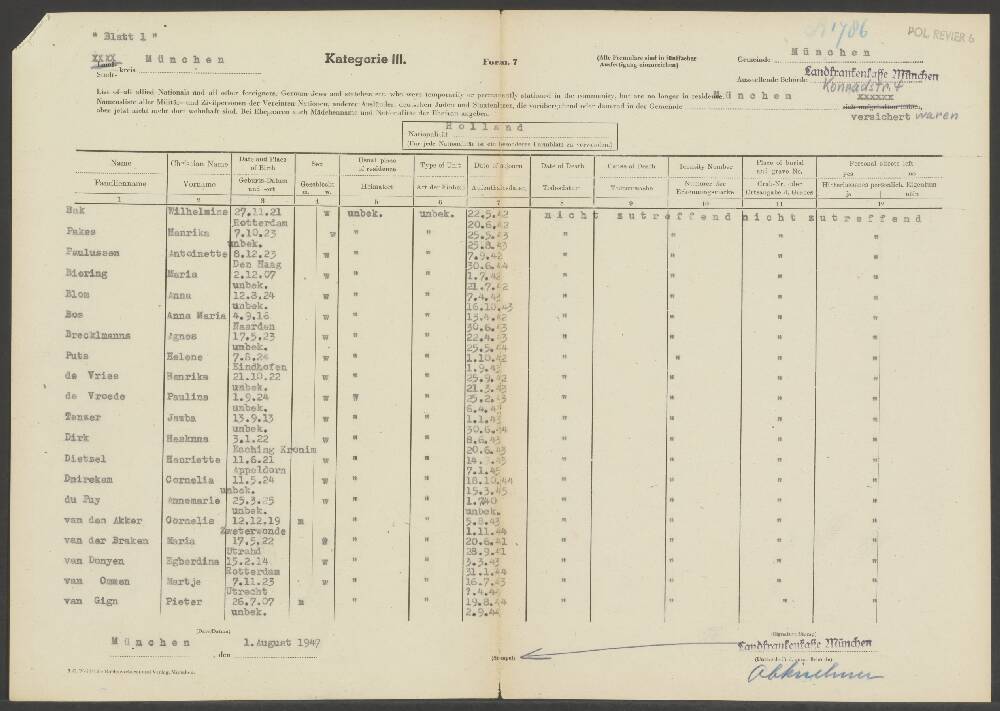 " Blatt 1 "
1786
POL REVIER 6
XXXX
Land-
Stadt-
kreis München
Kategorie III.
Form. 7
(Alle Formulare sind in fünffacher
Ausfertigung einzureichen)
Gemeinde München
Ausstellende Behörde Landkrankenkasse München
Konradstr. 4
List of all allied Nationals and all other foreigners, German Jews and stateless etc. who were temporarily or permanently stationed in the community, but are no longer in residence.
Namensliste aller Militär- und Zivilpersonen der Vereinten Nationen, anderer Ausländer, deutschen Juden und Staatenloser, die vorübergehend oder dauernd in der Gemeinde München XXXXXX
aber jetzt nicht mehr dort wohnhaft sind. Bei Ehefrauen auch Mädchenname und Nationalität des Ehemannes angeben.
sich aufgehalten haben,
versichert waren
Nationalität Holland
(Für jede Nationalität ist ein besonderes Formblatt zu verwenden)
Name Christian Name Date and Place of Birth Sex Usual place of residence Type of Unit Date of sojourn Date of Death Cause of Death Identity Number Place of burial and grave Nr. Personal effects left yes no
Familienname Vorname Geburts-Datum und -ort Geschlecht m. w. Heimatort Art der Einheit Aufenthaltsdauer Todesdatum Todesursache Nummer der Erkennungsmarke Grab-Nr. oder Ortsangabe d. Grabes Hinterlassenes persönlich. Eigentum ja nein
1 2 3 4 5 6 7 8 9 10 11 12
Bak Wilhelmine 27.11.21 w unbek. unbek. 22.5.42 nicht zutreffend nicht zutreffend
Rotterdam 20.6.42
Pakes Henrika 7.10.23 w " " 25.5.43 " " " "
unbek. 25.8.43
Paulussen Antoinette 8.12.23 w " " 7.9.42 " " " "
Den Haag 30.6.44
Biering Maria 2.12.07 w " " 1.7.42 " " " "
unbek. 21.7.42
Blom Anna 12.3.24 w " " 7.4.43 " " " "
unbek. 16.10.43
Bos Anna Maria 4.9.16 w " " 13.4.42 " " " "
Naarden 30.6.43
Brecklmanns Agnes 17.5.23 w " " 22.4.43 " " " "
unbek. 25.5.44
Puts Helene 7.8.24 w " " 1.10.42 " " " "
Eindhofen 1.9.43
de Vries Henrika 21.10.22 w " " 25.9.42 " " " "
unbek. 21.3.43
de Vroede Paulina 1.9.24 w " " 25.2.43 " " " "
unbek. 6.4.43
Tenzer Jawba 13.9.13 w " " 1.1.43 " " " "
unbek. 30.6.44
Dirk 3.1.22 w " " 8.6.43 " " " "
Esching Kronim 20.6.43
Dietzel Henriette 11.6.21 w " " 14.3.43 " " " "
Appeldorn 7.1.45
Dmirekem Cornelia 11.5.24 w " " 18.10.44 " " " "
unbek. 15.3.45
du Puy Annemarie 25.3.25 w " " 1.740 " " " "
unbek. unbek.
van den Akker Cornelis 12.12.19 m " " 5.8.43 " " " "
Zweterwonde 1.11.44
van der Braken Maria 17.5.22 w " " 20.6.41 " " " "
Utrahd 28.9.41
van Donyen Egberdina 15.2.14 w " " 3.3.43 " " " "
Rotterdam 31.1.44
van Ommen Martje 7.11.23 w " " 16.7.43 " " " "
Utrecht 7.4.44
van Gign Pieter 26.7.07 m " " 19.8.44 " " " "
unbek. 2.9.44
(Date/Datum)
München, den 1. August 1947
(Stempel)
(Signature/Stamp)
Landkrankenkasse München